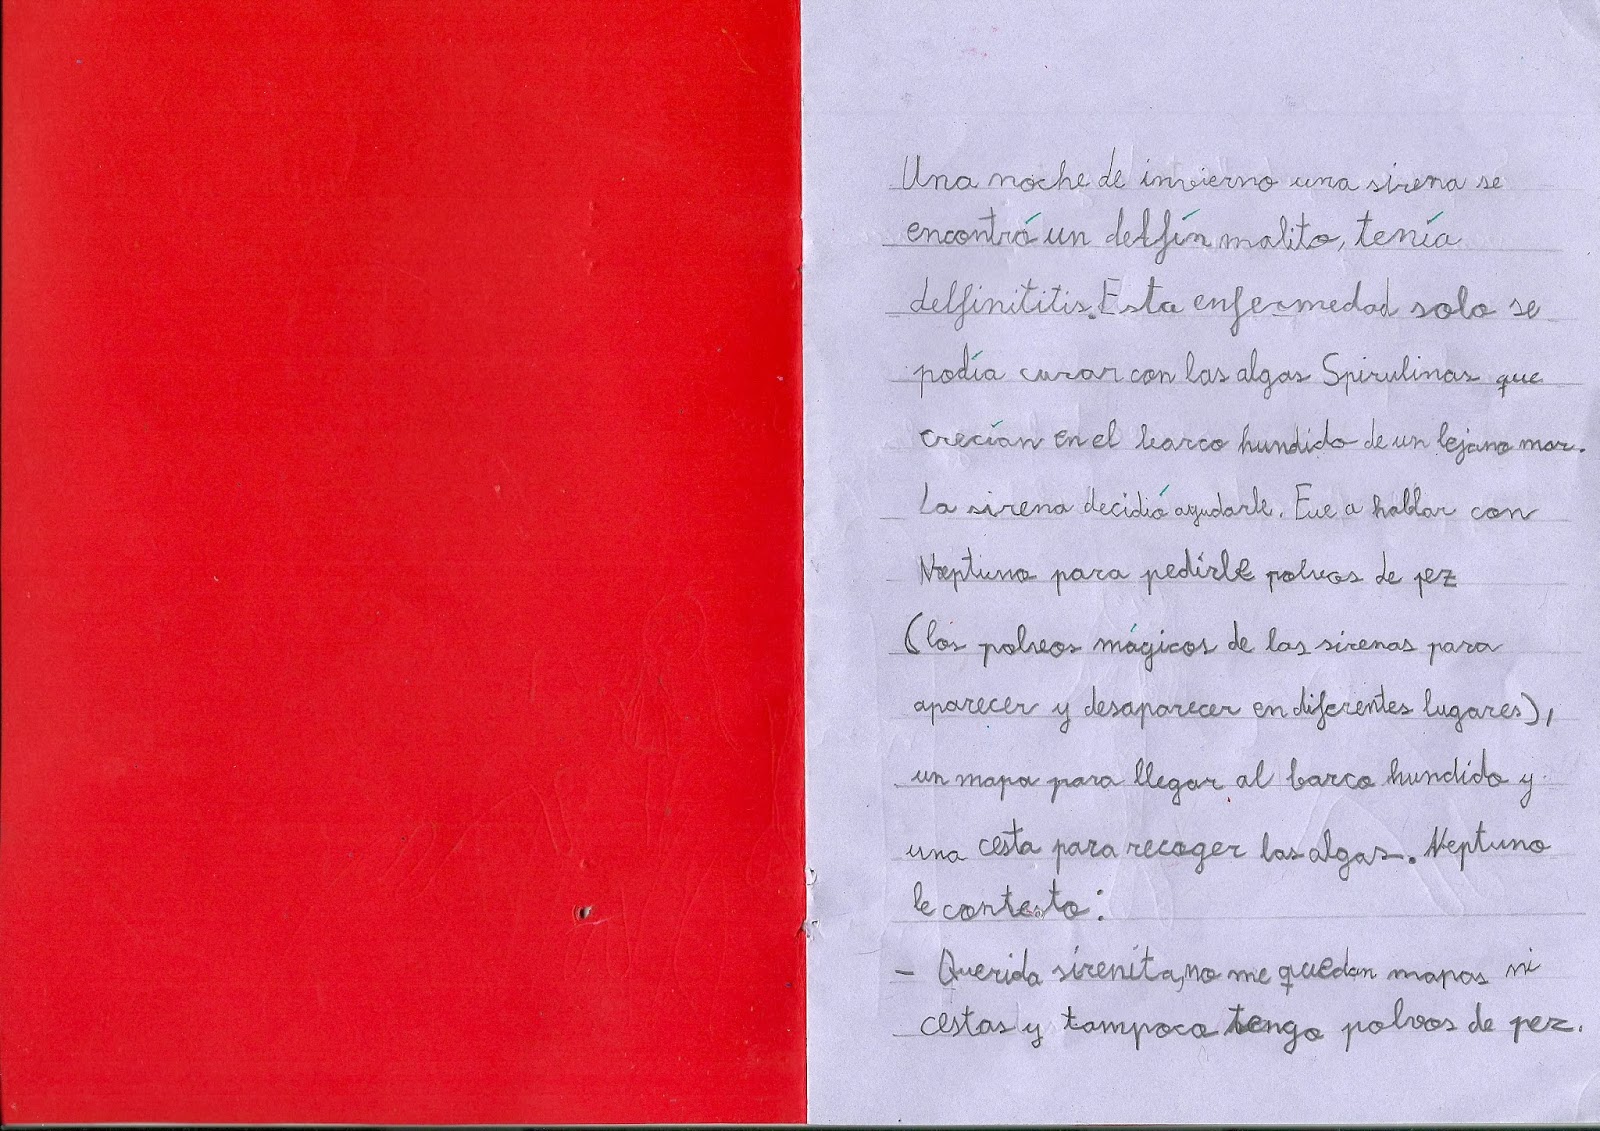 Una noche de invierno una sirena se
encontró un delfín malito, tenía
delfinititis. Esta enfermedad solo se
podía curar con las algas Spirulinas que
crecían en el barco hundido de un lejano mar.
La sirena decidió ayudarle. Fue a hablar con
Neptuno para pedirle polvos de pez
(los polvos mágicos de las sirenas para
aparecer y desaparecer en diferentes lugares),
un mapa para llegar al barco hundido y
una cesta para recoger las algas. Neptuno
le contesto:
- Querida sirenita, no me quedan mapas ni
cestas y tampoco tengo polvos de pez.